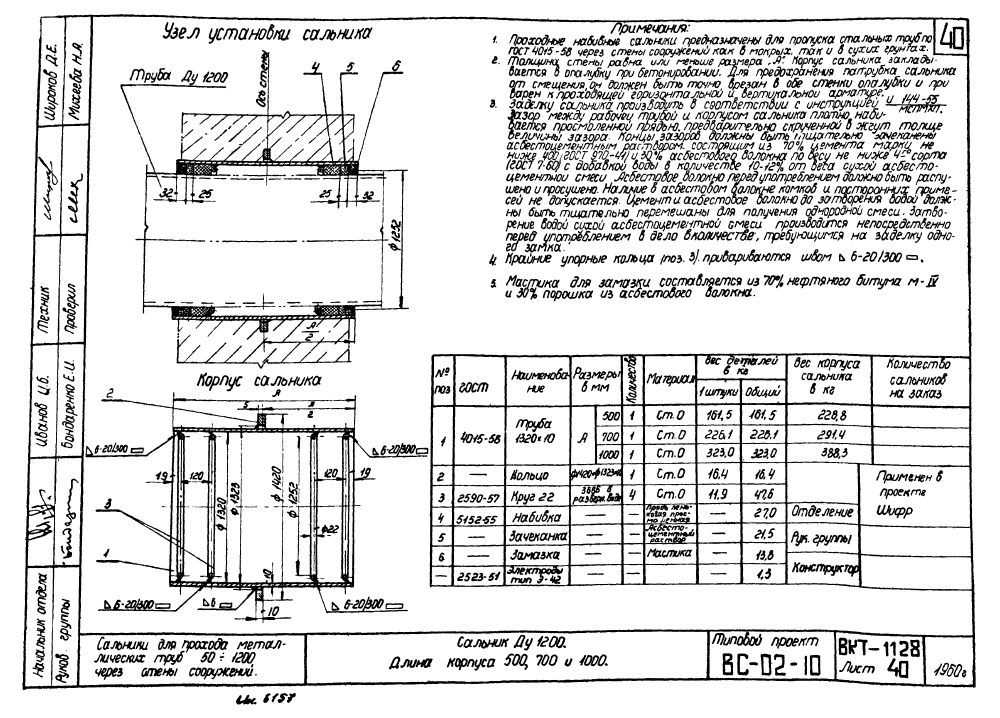 Узел установки сальника
Труба Ду 1200
Ось стены
4 5 6
32 25 25 32
ф1252
А
2
Корпус сальника
2
А
5
А
2
6-20/300
6-20/300
19 120 120 19
ф1320
ф1323
ф1420
ф1252
ф22
3
1
10
6-20/300
6
6-20/300
10
Примечания:
40
1. Проходные набивные сальники предназначены для пропуска стальных труб по
ГОСТ 4015-58 через стены сооружений как в мокрых, так и в сухих грунтах.
2. Толщина стены равна или меньше размера "А". Корпус сальника заклады-
вается в опалубку при бетонировании. Для предохранения патрубка сальника
от смещения, он должен быть точно врезан в обе стенки опалубки и при
варен к проходящей горизонтальной и вертикальной арматуре.
3. Заделку сальника производить в соответствии с инструкцией И 144-55
МСПМХП.
Зазор между рабочей трубой и корпусом сальника плотно наби-
вается просмоленной прядью, предварительно скрученной в жгут толще
величины зазора. Концы зазоров должны быть тщательно зачеканены
асбестоцементным раствором, состоящим из 70% цемента марки не
ниже 400 (ГОСТ 970-41) и 30% асбестового волокна по весу не ниже 4го сорта
(ГОСТ 7-60) с добавкой воды в количестве 10-12% от веса сухой асбесто-
цементной смеси. Асбестовое волокно перед употреблением должно быть распу-
шено и просушено. Наличие в асбестовом волокне комков и посторонних приме-
сей не допускается. Цемент и асбестовое волокно до затворения водой долж-
ны быть тщательно перемешаны для получения однородной смеси. Затво-
рение водой сухой асбестоцементной смеси производится непосредственно
перед употреблением в дело в количестве, требующимся на заделку одно-
го замка.
4. Крайние упорные кольца (поз. 3) привариваются швом 6-20/300
5. Мастика для замазки составляется из 70% нефтяного битума М-IV
и 30% порошка из асбестового волокна.
№ поз ГОСТ Наименова-ние Размеры в мм Количество Материал Вес деталей в кг 1 штуки Общий Вес корпуса сальника в кг Количество сальников на заказ
1 4015-58 Труба 1320×10 А 500 1 Ст.0 161,5 161,5 228,8
700 1 Ст.0 226,1 226,1 291,4
1000 1 Ст.0 323,0 323,0 388,3
2 — Кольцо 1 Ст.0 16,4 16,4
3 2590-57 Круг 22 3886 в разверн. виде 4 Ст.0 11,9 47,6
4 5152-55 Набивка — — — 27,0
5 — Зачеканка — — Асбесто-цементный раствор — 21,5
6 — Замазка — — Мастика — 13,8
— 2523-51 Электроды тип Э-42 — — — — 1,3
Применен в
проекте
Отделение Шифр
Рук. группы
Конструктор
Начальник отдела Иванов Ц.Б. Техник Широков Д.Е.
Руков. группы Бондаренко Е.И. Проверил Михеева Н.Я.
Сальники для прохода метал-
лических труб 50÷1200
через стены сооружений.
Сальник Ду 1200.
Длина корпуса 500, 700 и 1000.
Типовой проект
ВС-02-10
ВКТ-1128
Лист 40
1960г
Ин. 6157